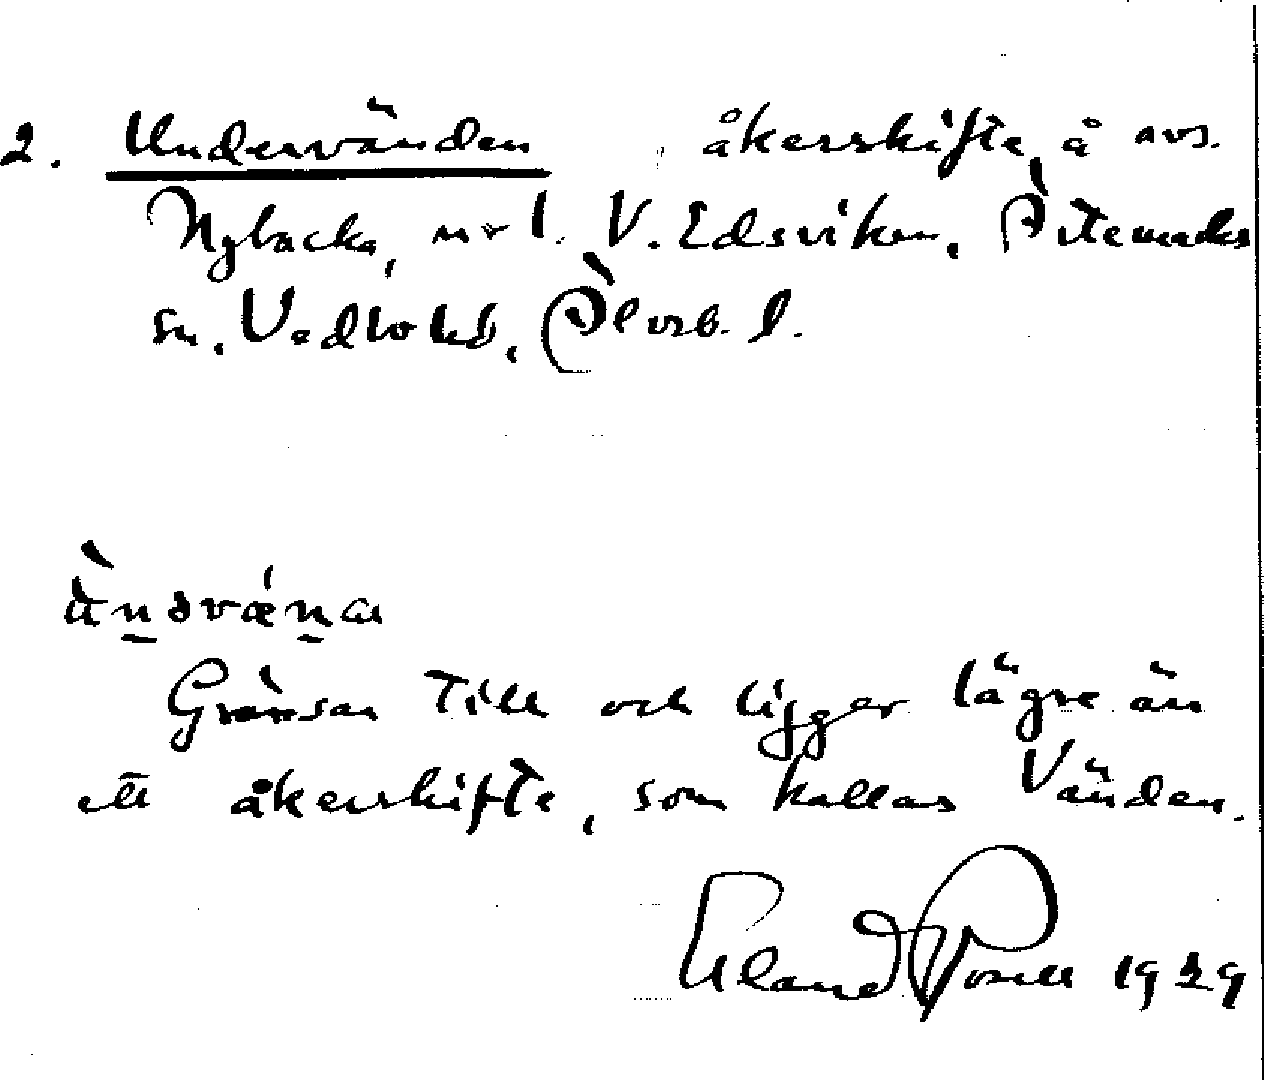 2. Undervänden, åkerskifte å avs.
Nybacka, nr 1. V. Edsviken, Åtemarks
sn. Vedbo hd, Älvsb. l.
ùn̲dvæ̀n̲a
Gränsar till och ligger lägre än
ett åkerskifte, som kallas Vänden.
Erland Rosell 1929